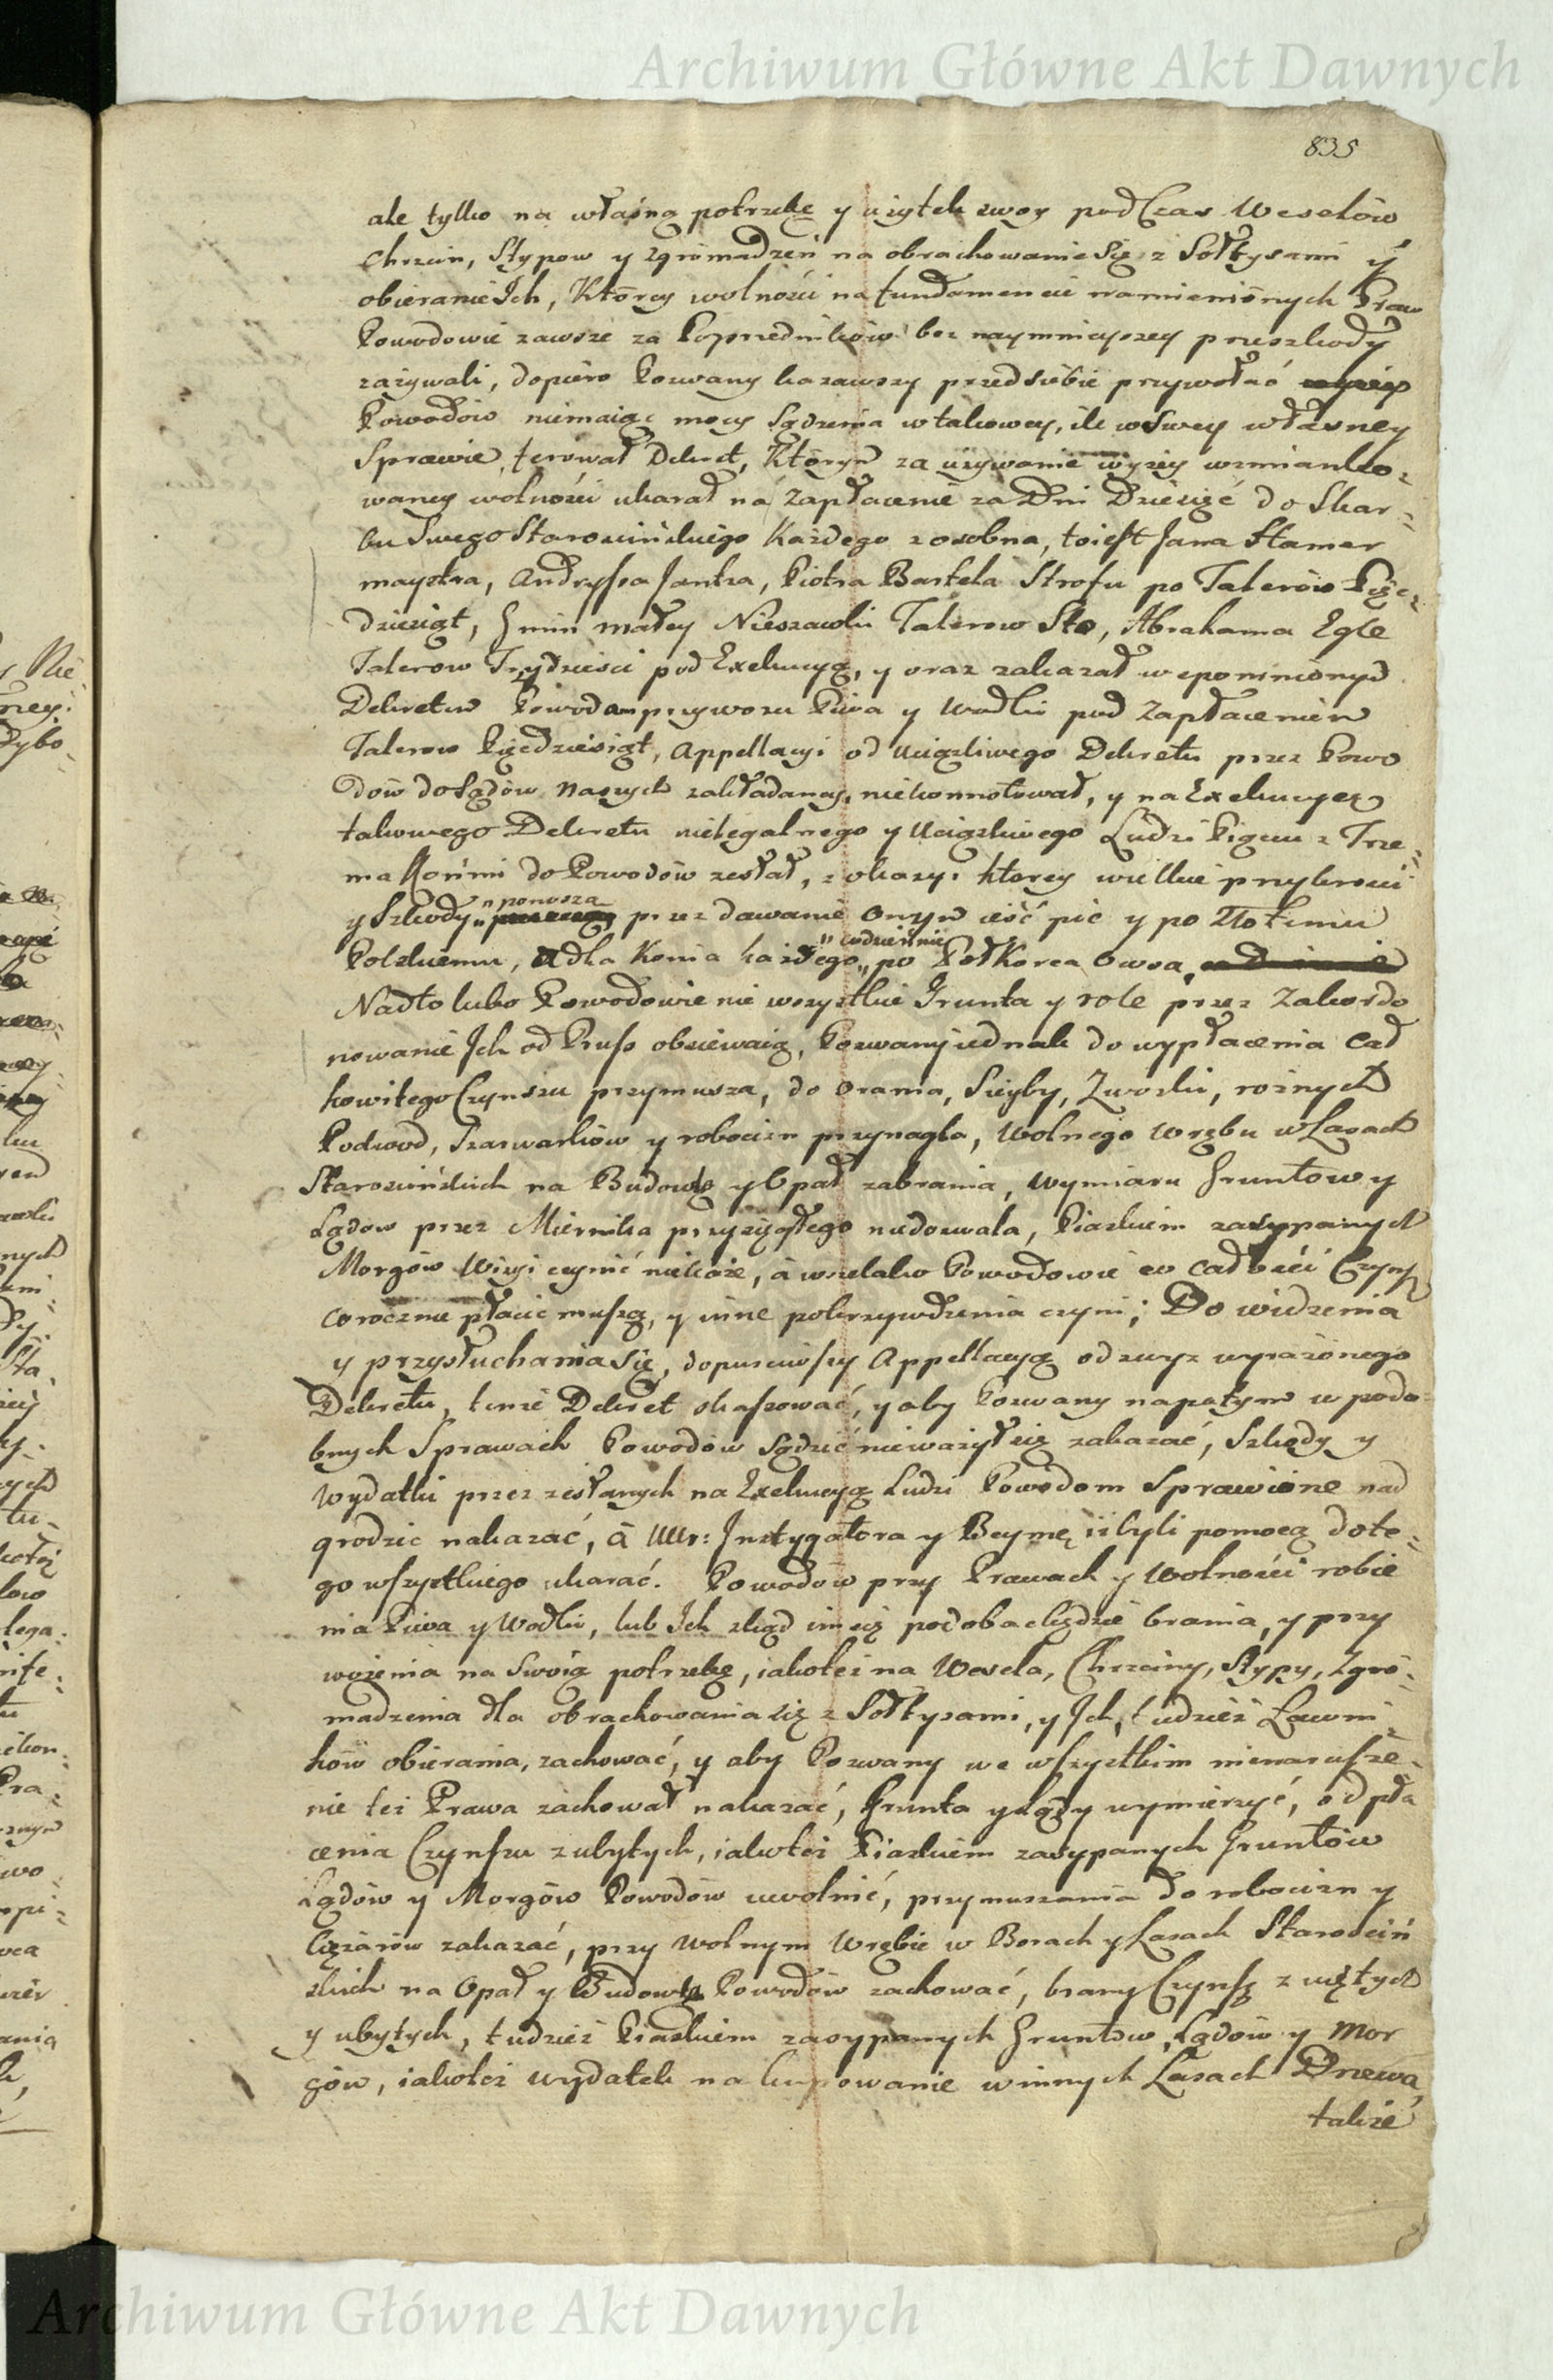 Archiwum Główne Akt Dawnych
835
ale tylko na własną potrzebę y użytek swoy pod Czas Weselów
Chrzcin, Stypow y zgromadzeń na obrachowanie się z Sołtysami y
obieranie Ich, Którey wolności na fundamencie namienionych Praw
Powodowie zawsze za Poprzedników bez naymnieyszey przeszkody
zażywali, dopiero Pozwany kazawszy przed siebie przywołać
Powodów niemaiąc mocy Sądzenia w takowey, ile w Swey własney
Sprawie, ferował Dekret, Którym za używanie wyżey wzmianko=
waney wolności ukarał na Zapłacenie za Dni Dziesięć do Skar=
bu Swego Starościńskiego Każdego z osobna, toiest Jana Stamer
maystra, Andryssa Jantza, Piotra Bartela Strofu po Talerów Pięć=
dziesiąt, Gmin małey Nieszawki Talerow Sto, Abrahama Egle
Talerow Trzydzieści pod Exekucyą, y oraz zakazał w spomnionym
Dekretem Powodom przywozu Piwa y Wodki pod Zapłaceniem
Talerow Pięćdziesiąt, Appellacyi od uciążliwego Dekretu przez Powo
dów do Sądów Naszych zakładaney, niekonnotował, y na Exekucyą
takowego Dekretu nielegalnego y Uciążliwego Ludzi Pięciu z Trze=
ma Końmi do Powodów zesłał, z okazyi ktorey wielkie przykrości
y Szkody „ponoszą przez dawanie onym ieść pić y po Złotemu
Polskiemu, a dla Konia każdego „codziennie po Pół Korca Owsa
Nadto lubo Powodowie nie wszystkie Grunta y role przez Zakordo
nowanie Ich od Pruss obsiewaią, Pozwany iednak do wypłacenia Cał
kowitego Czynszu przymusza, do orania, Sieyby, Zwozki, rożnych
Podwod, Szarwarków y robocizn przynagla, Wolnego Wrębu w Lasach
Starościńskich na Budowlę y Opał zabrania, Wymiaru Gruntow y
Lądow przez Miernika przysięgłego niedozwala, Piaskiem zasypanych
Morgów Wizyi czynić niekaże, a wszelako Powodowie w całości Czynsz
corocznie płacić muszą, y inne pokrzywdzenia czyni; Do widzenia
y przysłuchania się, dopuściwszy Appellacyą od zwyz wyrażonego
Dekretu, tenże Dekret skassować, y aby Pozwany napotym w podo
bnych Sprawach Powodów Sądzić nieważył się zakazać, Szkody y
Wydatki przez zesłanych na Exekucyą Ludzi Powodom Sprawione nad
grodzić nakazać, a Ur: Instygatora y Beymę iż byli pomocą do te=
go wszystkiego ukarać. Powodów przy Prawach y Wolności robie
nia Piwa y Wodki, lub Ich skąd im się podoba będzie brania, y przy
wożenia na Swoią potrzebę, iakoteż na Wesela, Chrzciny, Stypy, Zgro=
madzenia dla obrachowania się z Sołtysami, y Ich, tudzież Ławni=
ków obierania, zachować, y aby Pozwany we wszystkim nienarusze=
nie też Prawa zachował nakazać, Grunta y Lądy wymierzyć, od pła
cenia Czynszu z ubytych, iakoteż Piaskiem zasypanych Gruntów
Lądów y Morgów Powodów uwolnić, przymuszania do robocizn y
Ciężarów zakazać, przy Wolnym Wrębie w Borach y Lasach Starościń
skich na Opał y Budowlę Powodów zachować, brany Czynsz z ujętych
y ubytych, tudzież Piaskiem zasypanych Gruntow, Lądów y Mor
gów, iakoteż wydatek na kupowanie w innych Lasach Drzewa,
także
Archiwum Główne Akt Dawnych